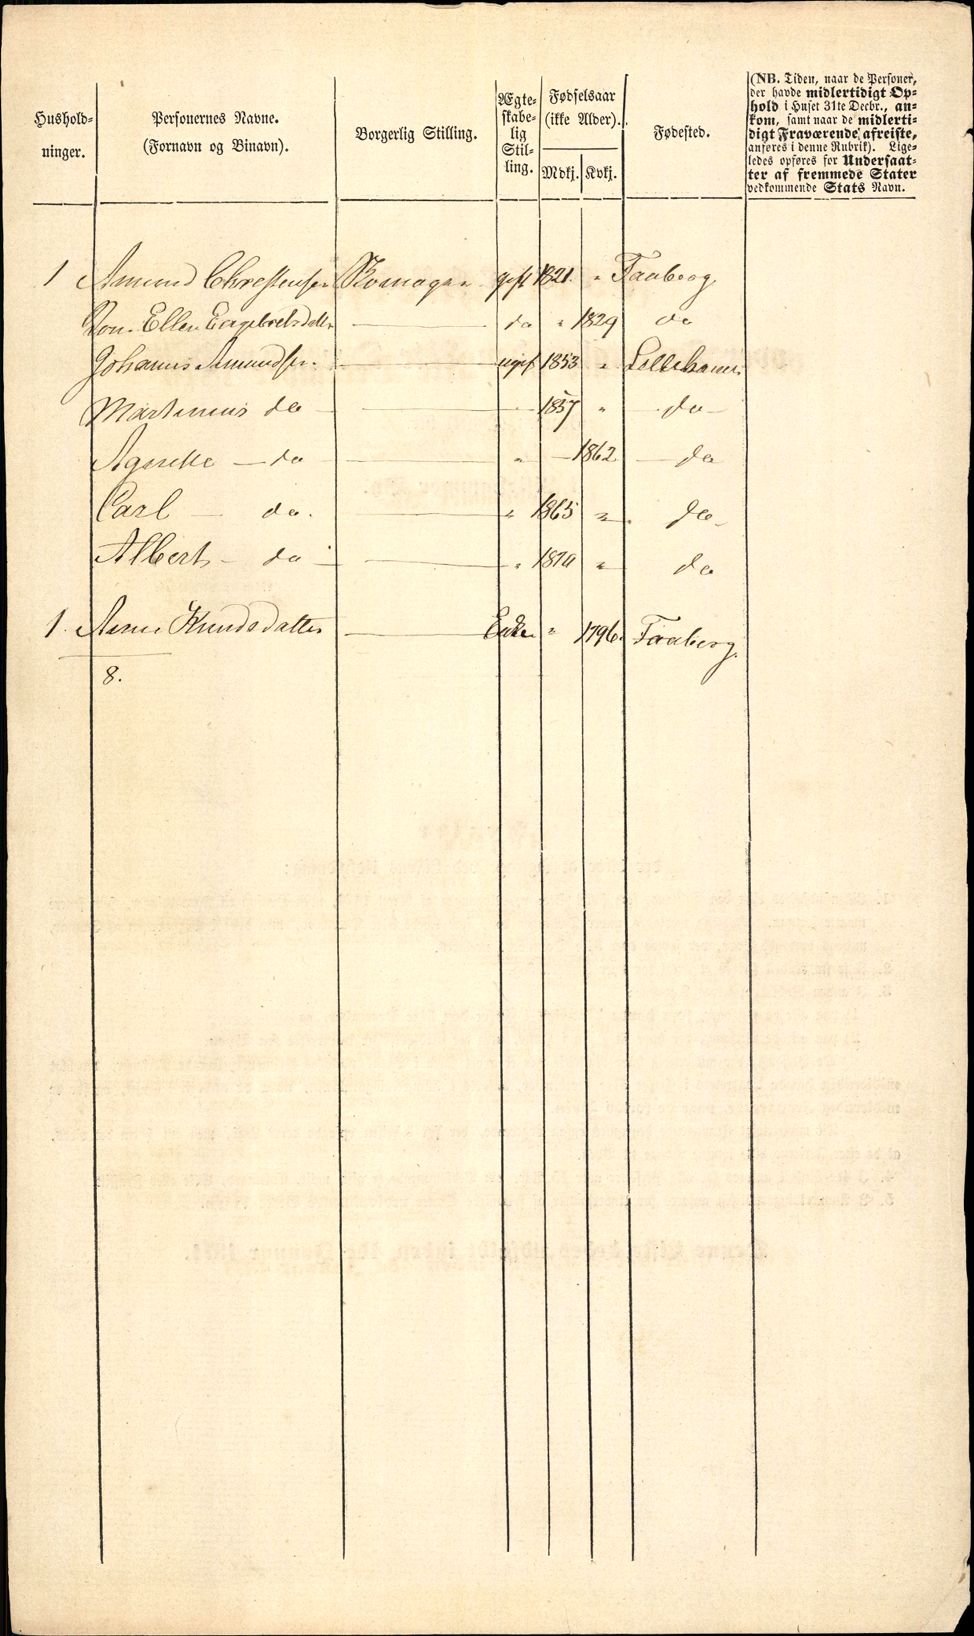 Hushold-
ninger.
Personernes Navne.
(Fornavn og Binavn).
Borgerlig Stilling.
Ægte-
skabe-
lig
Stil-
ling.
Fødselsaar
(ikke Alder).
Mdkj. Kvkj.
Fødested.
(NB. Tiden, naar de Personer,
der havde midlertidigt Op-
hold i Huset 31te Decbr., an-
kom, samt naar de midlerti-
digt Fraværende afreiste,
anføres i denne Rubrik). Lige-
ledes opføres for Undersaat-
ter af fremmede Stater
vedkommende Stats Navn.
1 Amund Christensen gift 1821 " Faaberg
Kon. Ellen Engebretsdatter do " 1829 do
Johannes Amundsen ugift 1853 " Lillehamer
Martinius do 1857 " do
Agnette do " 1862 do
Carl do. " 1865 " do
Albert do " 1870 " do
1. Anne Knudsdatter Enke " 1796 Faaberg.
8.